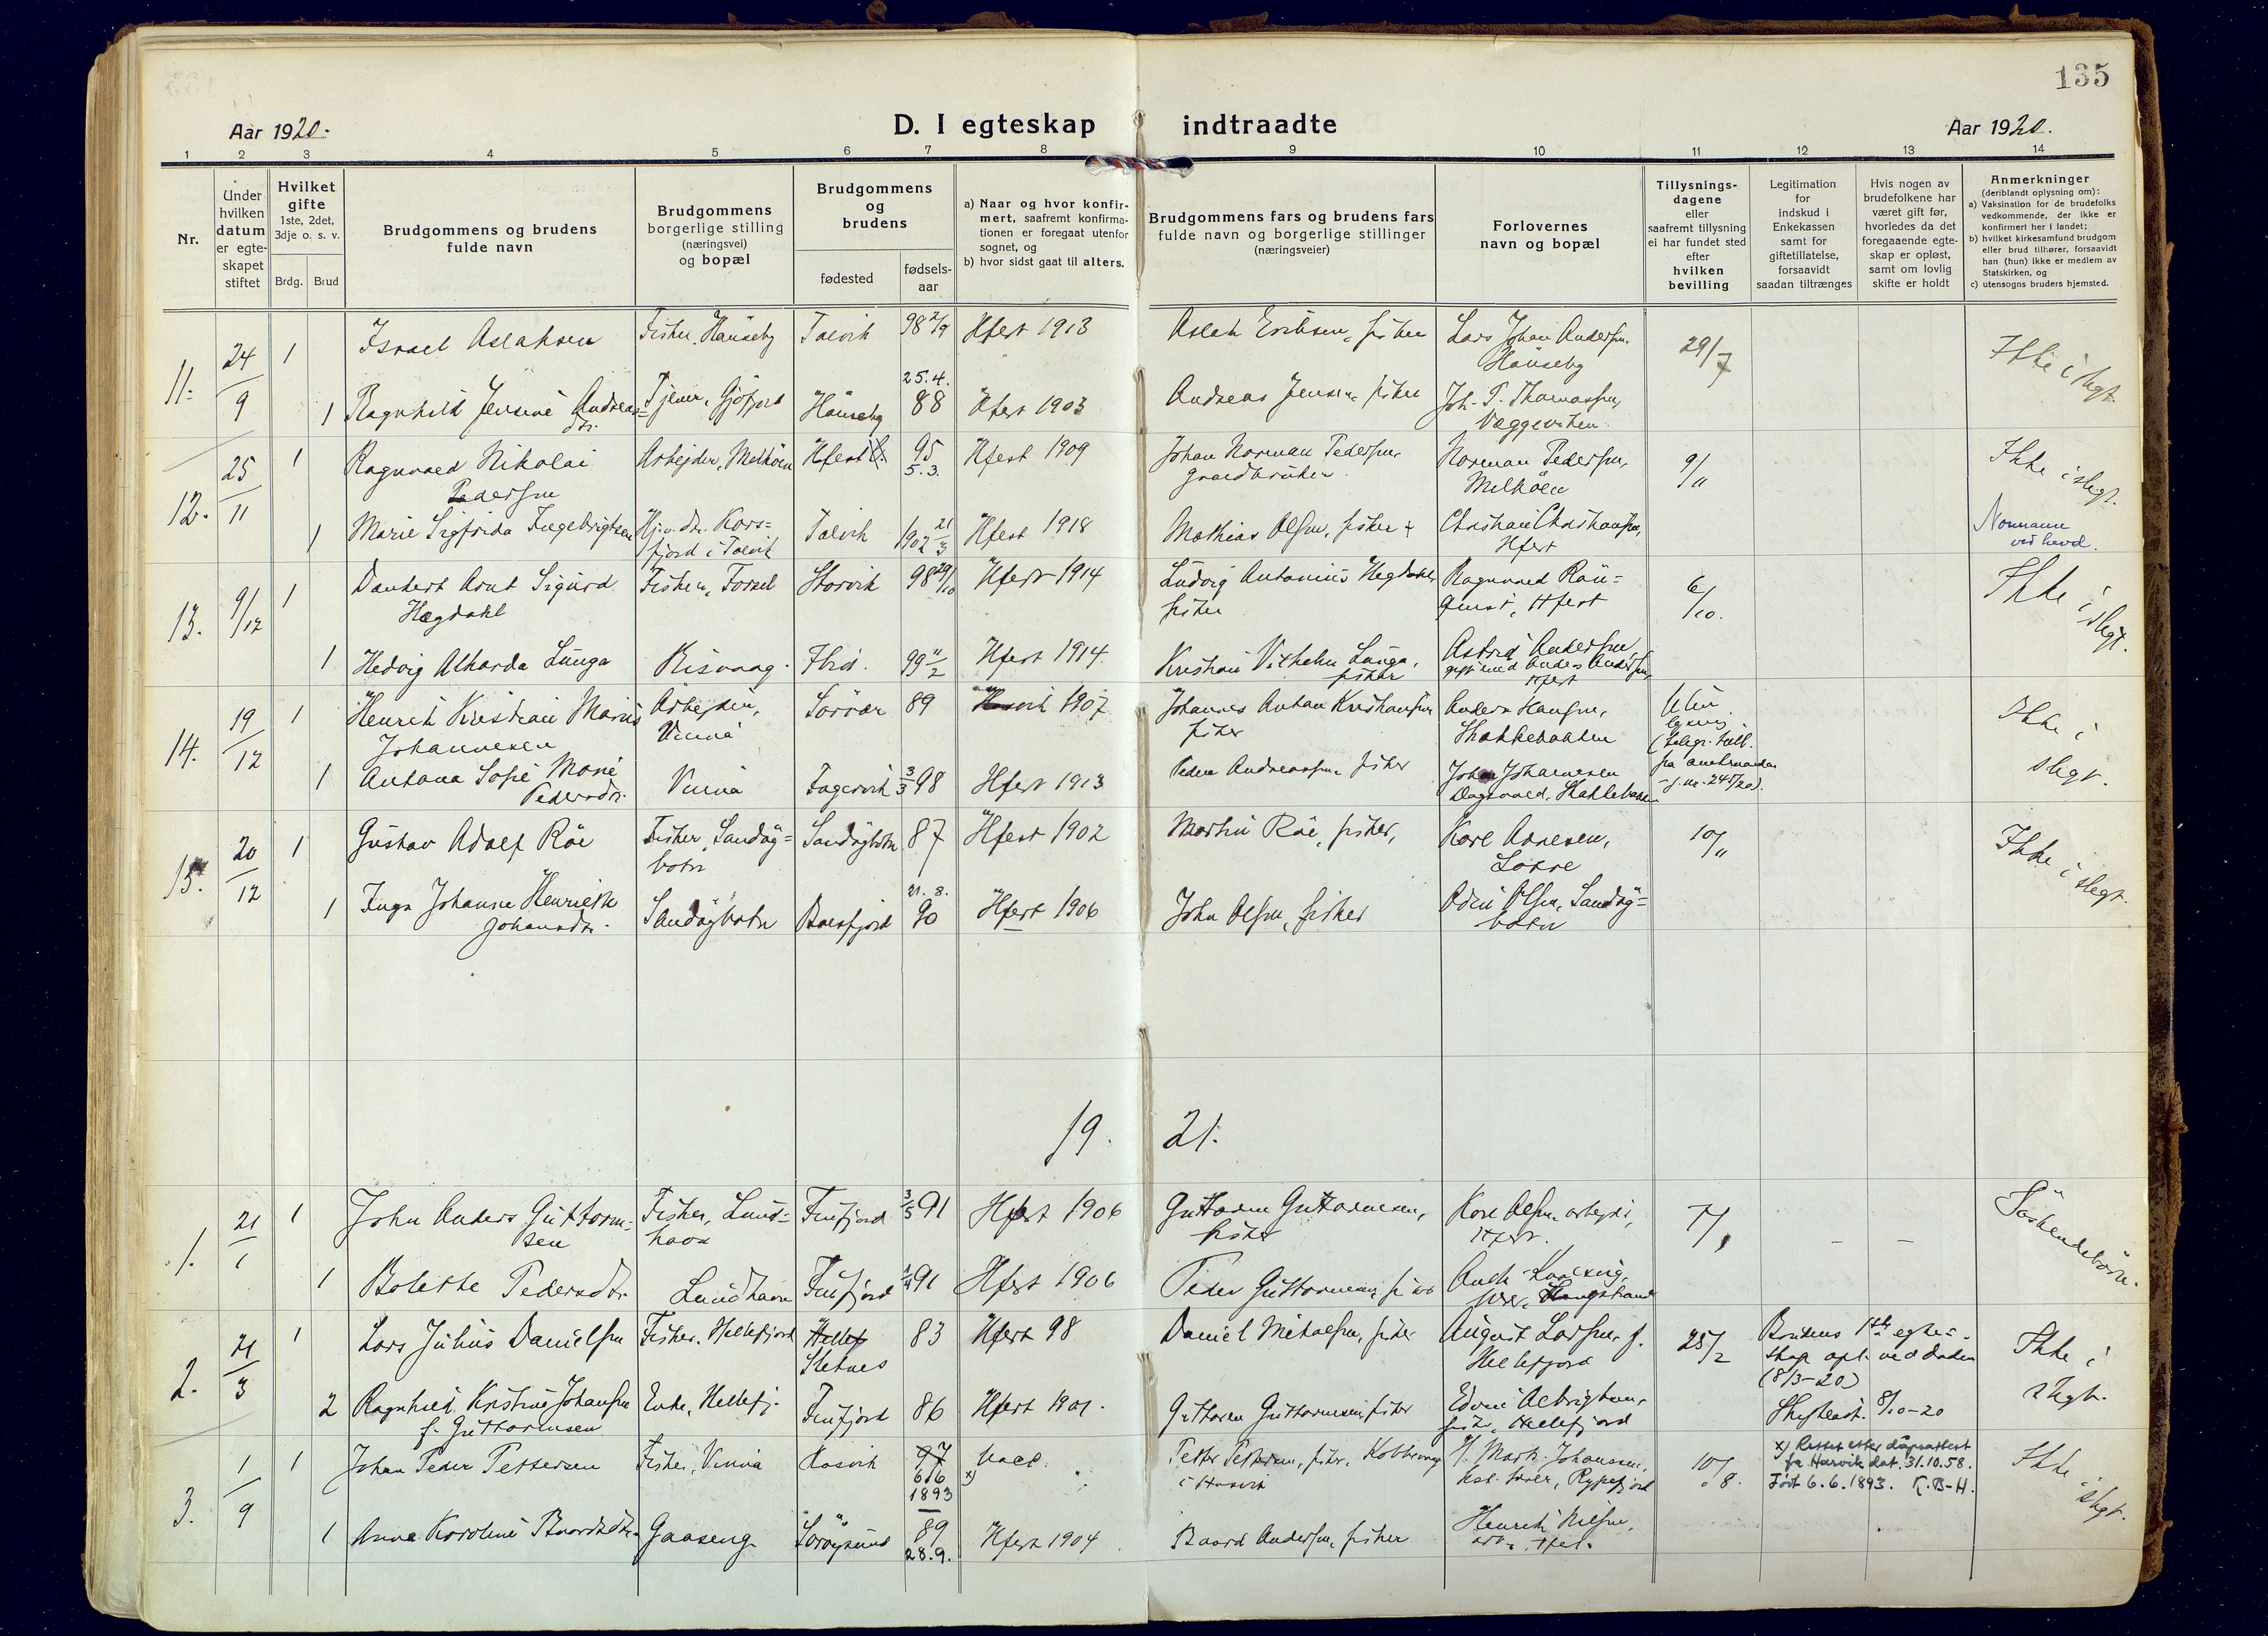 135
Aar 1920.
D. I egteskap indtraadte
Aar 1920.
1 2 3 4 5 6 7 8 9 10 11 12 13 14
Nr.
Under
hvilken
datum
er egte-
skapet
stiftet
Hvilket
gifte
1ste, 2det,
3dje o. s. v.
Brdg. Brud
Brudgommens og brudens
fulde navn
Brudgommens
borgerlige stilling
(næringsvei)
og bopæl
Brudgommens
og
brudens
fødested
fødsels-
aar
a) Naar og hvor konfir-
mert, saafremt konfirma-
tionen er foregaat utenfor
sognet, og
b) hvor sidst gaat til alters.
Brudgommens fars og brudens fars
fulde navn og borgerlige stillinger
(næringsveier)
Forlovernes
navn og bopæl
Tillysnings-
dagene
eller
saafremt tillysning
ei har fundet sted
efter
hvilken
bevilling
Legitimation
for
indskud i
Enkekassen
samt for
giftetillatelse,
forsaavidt
saadan tiltrænges
Hvis nogen av
brudefolkene har
været gift før,
hvorledes da det
foregaaende egte-
skap er opløst,
samt om lovlig
skifte er holdt
Anmerkninger
(deriblandt oplysning om):
a) Vaksination for de brudefolks
vedkommende, der ikke er
konfirmert her i landet;
b) hvilket kirkesamfund brudgom
eller brud tilhører, forsaavidt
han (hun) ikke er medlem av
Statskirken, og
c) utensogns bruders hjemsted.
11. 24/9 1 Israel Aslaksen Fisker, Hönseby Talvik 98 2/9 Hfest 1913 Aslak Eriksen, fisker Lars Johan Andersen,
Hönseby 29/7 Ikke i slegt.
1 Ragnhild Jensine Andreas-
dtr. Tjener, Gjøfjord Hönseby 25.4.
88 Hfest 1903 Andreas Jensen, fisker Joh. P. Thomassen,
Væggeviken.
12. 25/11 1 Ragnvald Nikolai
Pedersen Arbejder, Melköen Hfest 95
5.3. Hfest 1909 Johan Norman Pedersen,
gaardbruker Norman Pedersen,
Melköen 9/11 Ikke i slegt.
1 Marie Sigfrida Ingebrigtsen Kors=
fjord i Talvik Talvik 1902 21/3 Hfest 1918 Mathias Olsen, fisker Christian Christiansen,
Hfest Normann
ved hovd.
13. 9/12 1 Dankert Arnt Sigurd
Hegdahl Fisker, Forsøl Storvik 98 29/10 Hfest 1914 Ludvig Antonius Hegdahl,
fisker Ragnvald Rön=
qvist, Hfest 6/10. Ikke i slegt.
1 Hedvig Alharda Lunga Risvaag. Ibid. 99 11/2 Hfest 1914. Kristian Vilhelm Lunga,
fisker Astrid Andersen,
gift med Anders Andersen,
Hfest
14. 19/12 1 Henrik Kristian Marius
Johannesen Arbejder,
Vinna Sörvær 89 Hasvik 1907 Johannes Antan Kristiansen
fisker Anders Hansen,
Skakkebakken Uten
lysning
(telegr. till.
fra amtmanden
j.nr. 245/20). Ikke i
slegt.
1 Antona Sofie Marie
Pedersdtr. Vinna Fagervik 3/3 98 Hfest 1913 Peder Andreassen, fisker John Johannesen
Dagsvold, Skakkebakken
15. 20/12 1 Gustav Adolf Röe Fisker, Sandög=
botn Sandögbotn 87 Hfest 1902 Martin Röe, fisker, Karl Arnesen,
Lokre 10/11 Ikke i slegt.
1 Inga Johanne Henriette
Johansdtr. Sandögbotn 21. 8.
90 Hfest 1906 John Olsen, fisker Odin Olsen, Sandög=
botn
19. 21.
1. 21/1 1 John Anders Guttorm-
sen Fisker, Lund=
havn Finfjord 3/5 91 Hfest 1906 Guttorm Guttormsen,
fisker Kare Olsen, arbejder,
Hfest. 7/1 – – Söskendebörn.
1 Bolette Pedersdtr. Lundhavn Finfjord 91 Hfest 1906 Peder Guttormsen, fisker
2. 21/3 1 Lars Julius Danielsen Fisker, Hellefjord Hellef
Sletnes 83 Hfest 98 Daniel Mikalsen, fisker August Larsen, f.
Hellefjord 25/2 Brudens 1ste egte-
skap opl. ved døden
(8/3-20)
Skifteatt. 8/10-20 Ikke i
slegt.
2 Ragnhild Kristine Johansen
f. Guttormsen Enke, Hellefj. Finfjord 86 Hfest 1901. Guttorm Guttormsen, fisker Edvin Albrigtsen,
fisker, Hellefjord
3. 1/9 1 Johan Peder Pettersen Fisker, Vinna Hasvik 97
6/6
1893 x) Petter Pettersen, fisker, Kobbevaag
i Hasvik Mart. Johansen,
Rypefjord 10/8. x) Rettet etter dåpsattest
fra Hasvik dat. 31.10.58.
Født 6.6.1893. K.B-H. Ikke i slegt.
1 Anna Karoline Baardsdtr. Gaaseng Söröysund 89
28.9. Hfest 1904 Baard Andersen, fisker Henrik Nilsen,